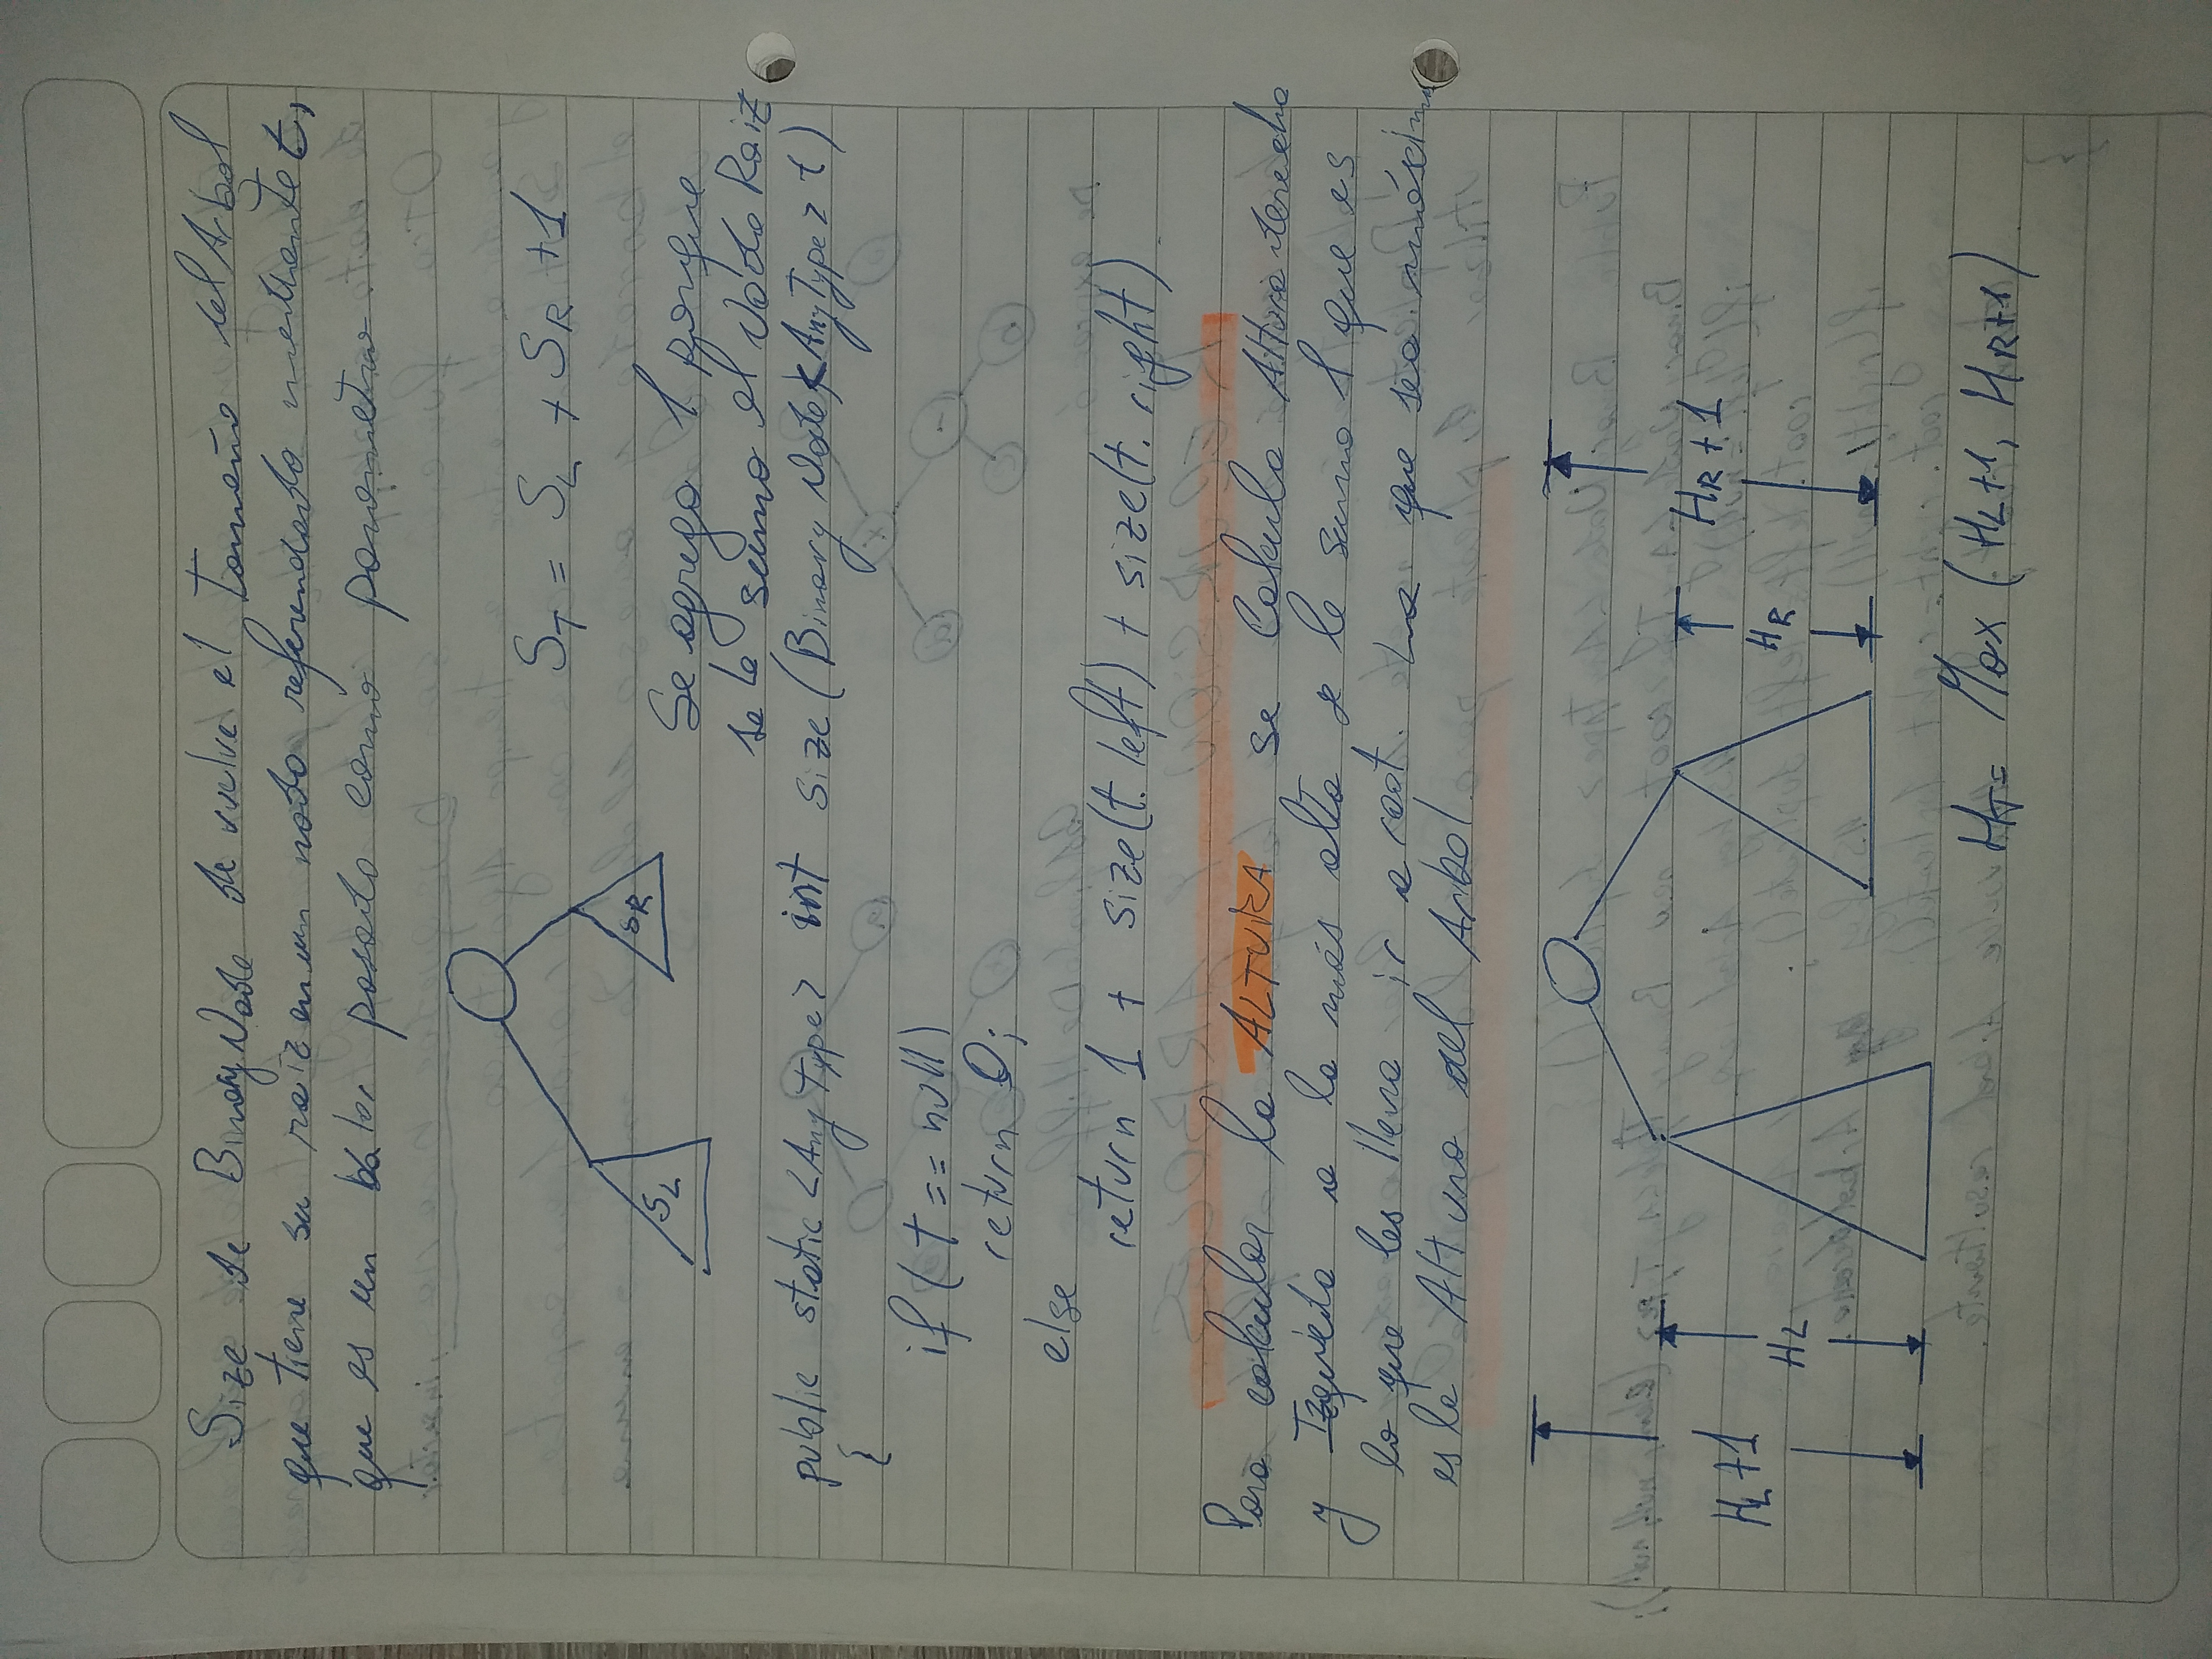 Size de BinaryNode devuelve el tamaño del Arbol
que tiene su raiz en un nodo referendado mediante t,
que es un balor pasado como parametro
S_T = S_L + S_R + 1
S_L
S_R
Se agrega 1 porque
se le suma el Nodo Raiz
public static <AnyType> int size (BinaryNode<AnyType> t)
{
if (t == null)
return 0;
else
return 1 + size(t.left) + size(t.right)
Para calcular la ALTURA se Calcula Altura derecha
y Izquieda a la más alta se le suma 1 que es
lo que les lleva ir a root. La que sea máxima
es la Altura del Arbol.
H_L+1
H_L
H_R
H_R+1
H_T = Max (H_L+1, H_R+1)